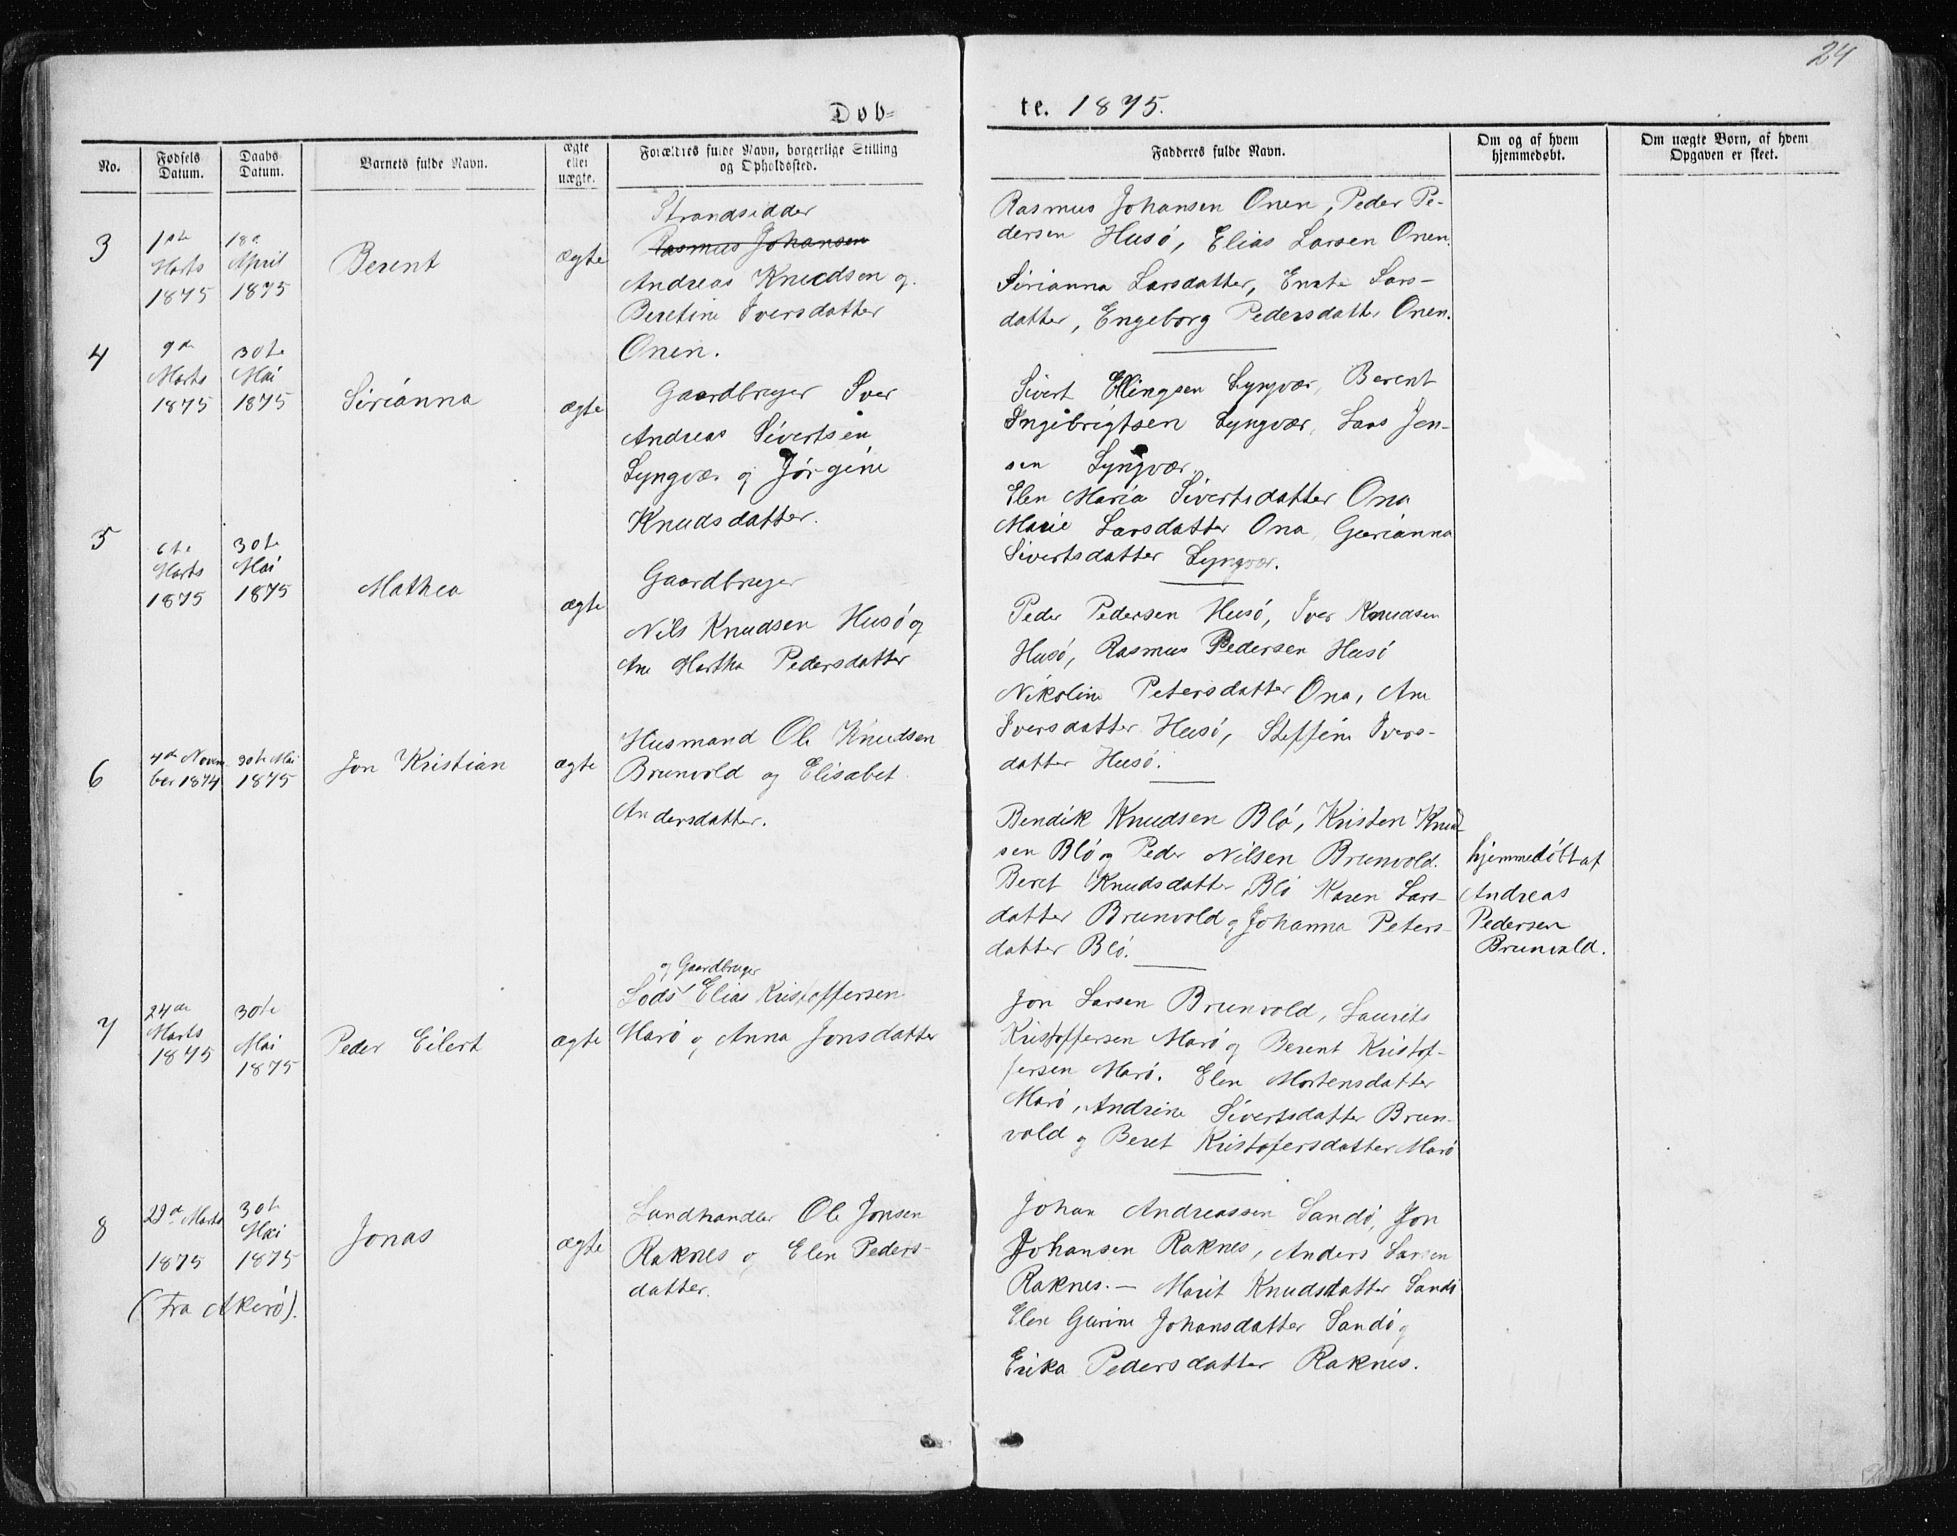 24
Døb-
te. 1875.
No.
Fødsels
Datum.
Daabs
Datum.
Barnets fulde Navn.
ægte
eller
uægte.
Forældres fulde Navn, borgerlige Stilling
og Opholdssted.
Fadderes fulde Navn.
Om og af hvem
hjemmedøbt.
Om uægte Børn, af hvem
Opgaven er skeet.
3
1ste
Marts
1875
18de
April
1875
Berent
ægte
Strandsidder
Rasmus Johansen
Andreas Knudsen og
Beretine Iversdatter
Onen.
Rasmus Johansen Onen, Peder Pe-
dersen Husö, Elias Larsen Onen.
Sirianna Larsdatter, Lars-
datter, Engeborg Pedersdatter Onen.
4
9de
Marts
1875
30te
Mai
1875
Sirianna
ægte
Gaardbruger Iver
Andreas Sivertsen
Lyngvær og Jörgine
Knudsdatter.
Sivert Ellingsen Lyngvær, Berent
Ingebrigtsen Lyngvær, Lars Jen-
sen Lyngvær
Elen Maria Sivertsdatter Ona
Marie Larsdatter Ona, Gurianna
Sivertsdatter Lyngvær.
5
6te
Marts
1875
30te
Mai
1875
Mathea
ægte
Gaardbruger
Nils Knudsen Husö og
Ane Martha Pedersdatter
Peder Pedersen Husö, Iver Knudsen
Husö, Rasmus Pedersen Husö
Nikoline Petersdatter Ona, Ane
Iversdatter Husö, Steffine Ivers-
datter Husö.
6
4de Novem
ber 1874
30te Mai
1875
Jon Kristian
ægte
Husmand Ole Knudsen
Brunvold og Elisabet
Andersdatter.
Bendik Knudsen Blö, Kristen Knud
sen Blö og Peder Nilsen Brunvold.
Beret Knudsdatter Blö Karen Lars-
datter Brunvold og Johanna Peters-
datter Blö.
hjemmedöbt af
Andreas
Pedersen
Brunvold.
7
24de
Marts
1875
30te
Mai
1875
Peder Eilert
ægte
og Gaardbruger
Lods Elias Kristoffersen
Marö og Anna Jonsdatter
Jon Larsen Brunvold, Laurits
Kristoffersen Marö og Berent Kristof-
fersen Marö. Elen Mortensdatter
Marö, Andrine Sivertsdatter Brun-
vold og Beret Kristofersdatter Marö
8
29de Marts
1875
30te
Mai
1875
(Fra Akerö).
Jonas
ægte
Landhandler Ole Jonsen
Raknes og Elen Peders-
datter.
Johan Andreassen Sandö, Jon
Johansen Raknes, Anders Larsen
Raknes. — Marit Knudsdatter Sandö
Elen Gurine Johansdatter Sandö og
Erika Pedersdatter Raknes.